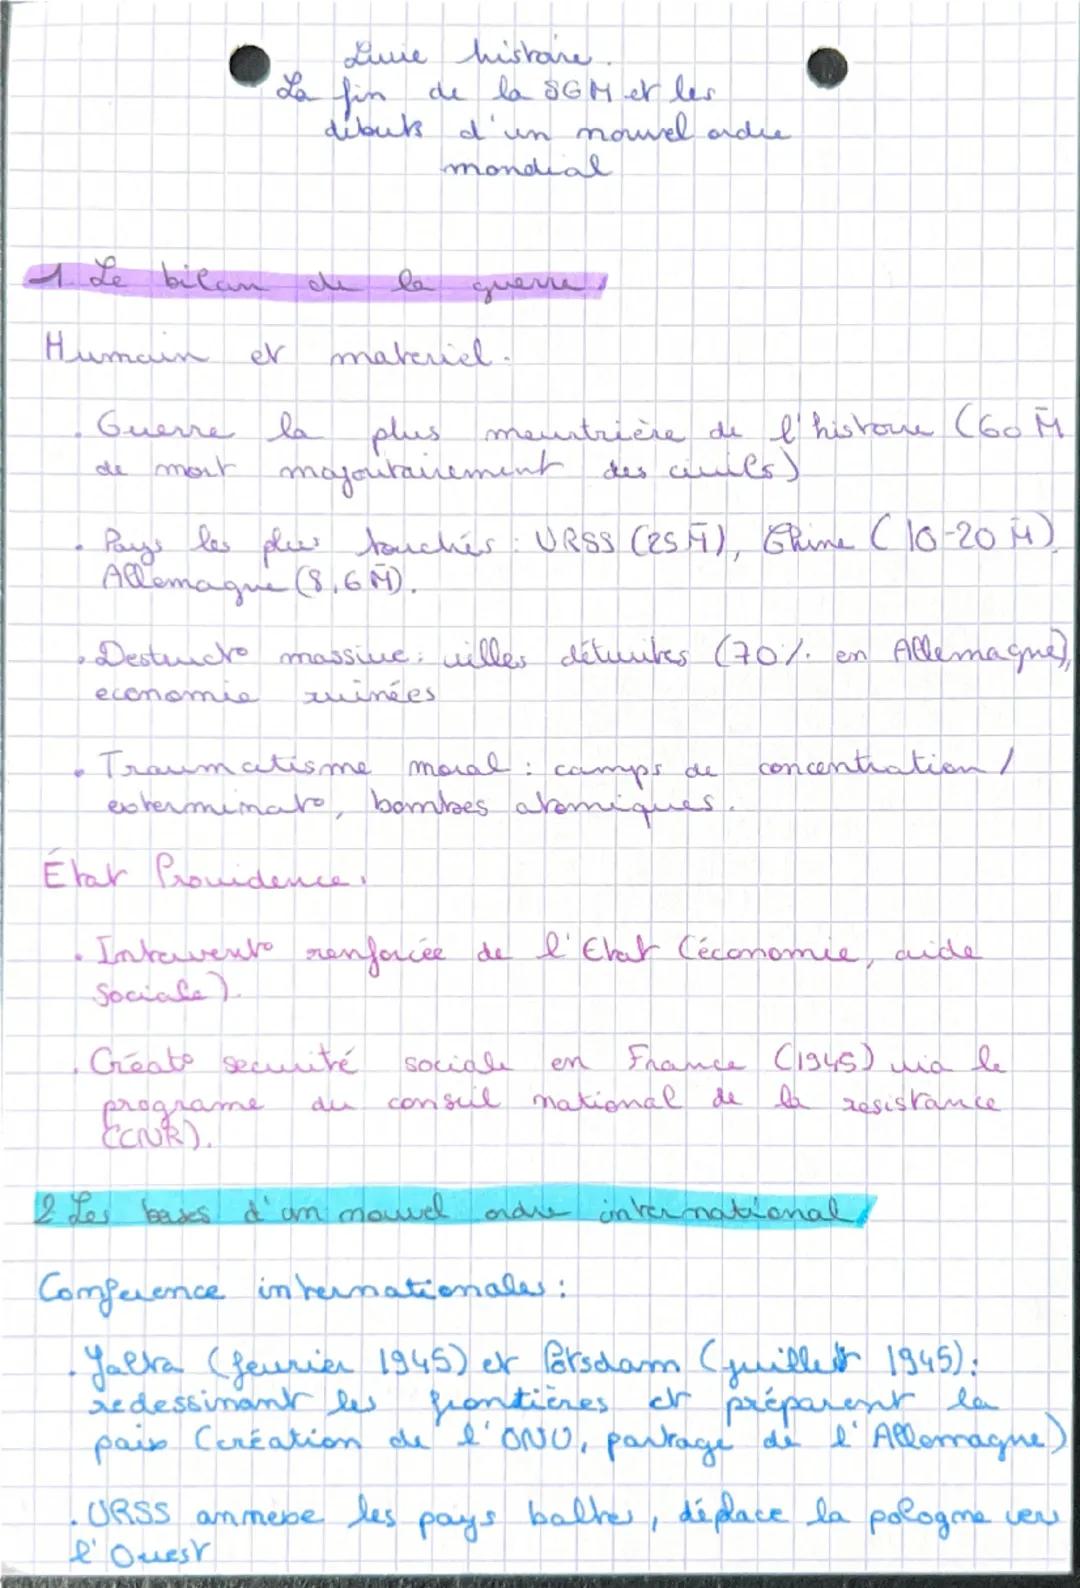 Livre histoire.
La fin de la SGM et les
débuts d'un nouvel ordre
mondial
1 Le bilan de la guerre
Humain et materiel.
. Guerre la plus meurtrière de l'histoire (60 M̄
de mort majoritairement des civils)
. Pays les plus touchés : URSS (25 M̄), Chine (10-20 M̄)
Allemagne (8,6 M̄).
. Destructº massive : villes détruites (70% en Allemagne),
economie ruinées
. Traumatisme moral : camps de concentration /
exterminatº, bombes atomiques.
État Providence.
. Interventº renforcée de l'Etat (économie, aide
sociale).
. Créatº securité sociale en France (1945) via le
programe du conseil national de la resistance
(CNR).
2 Les bases d'un nouvel ordre international
Conference internationales :
. Yalta (fevrier 1945) et Potsdam (juillet 1945) :
redessinant les frontières et préparent la
paix (création de l'ONU, partage de l'Allemagne)
. URSS annexe les pays baltes, déplace la pologne vers
l'Ouest